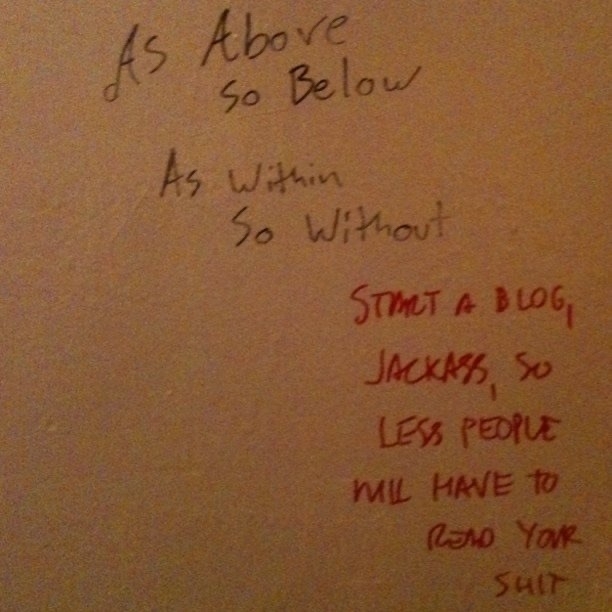 As Above
so Below
As Within
So Without
START A BLOG,
JACKASS, SO
LESS PEOPLE
WILL HAVE TO
READ YOUR
SHIT